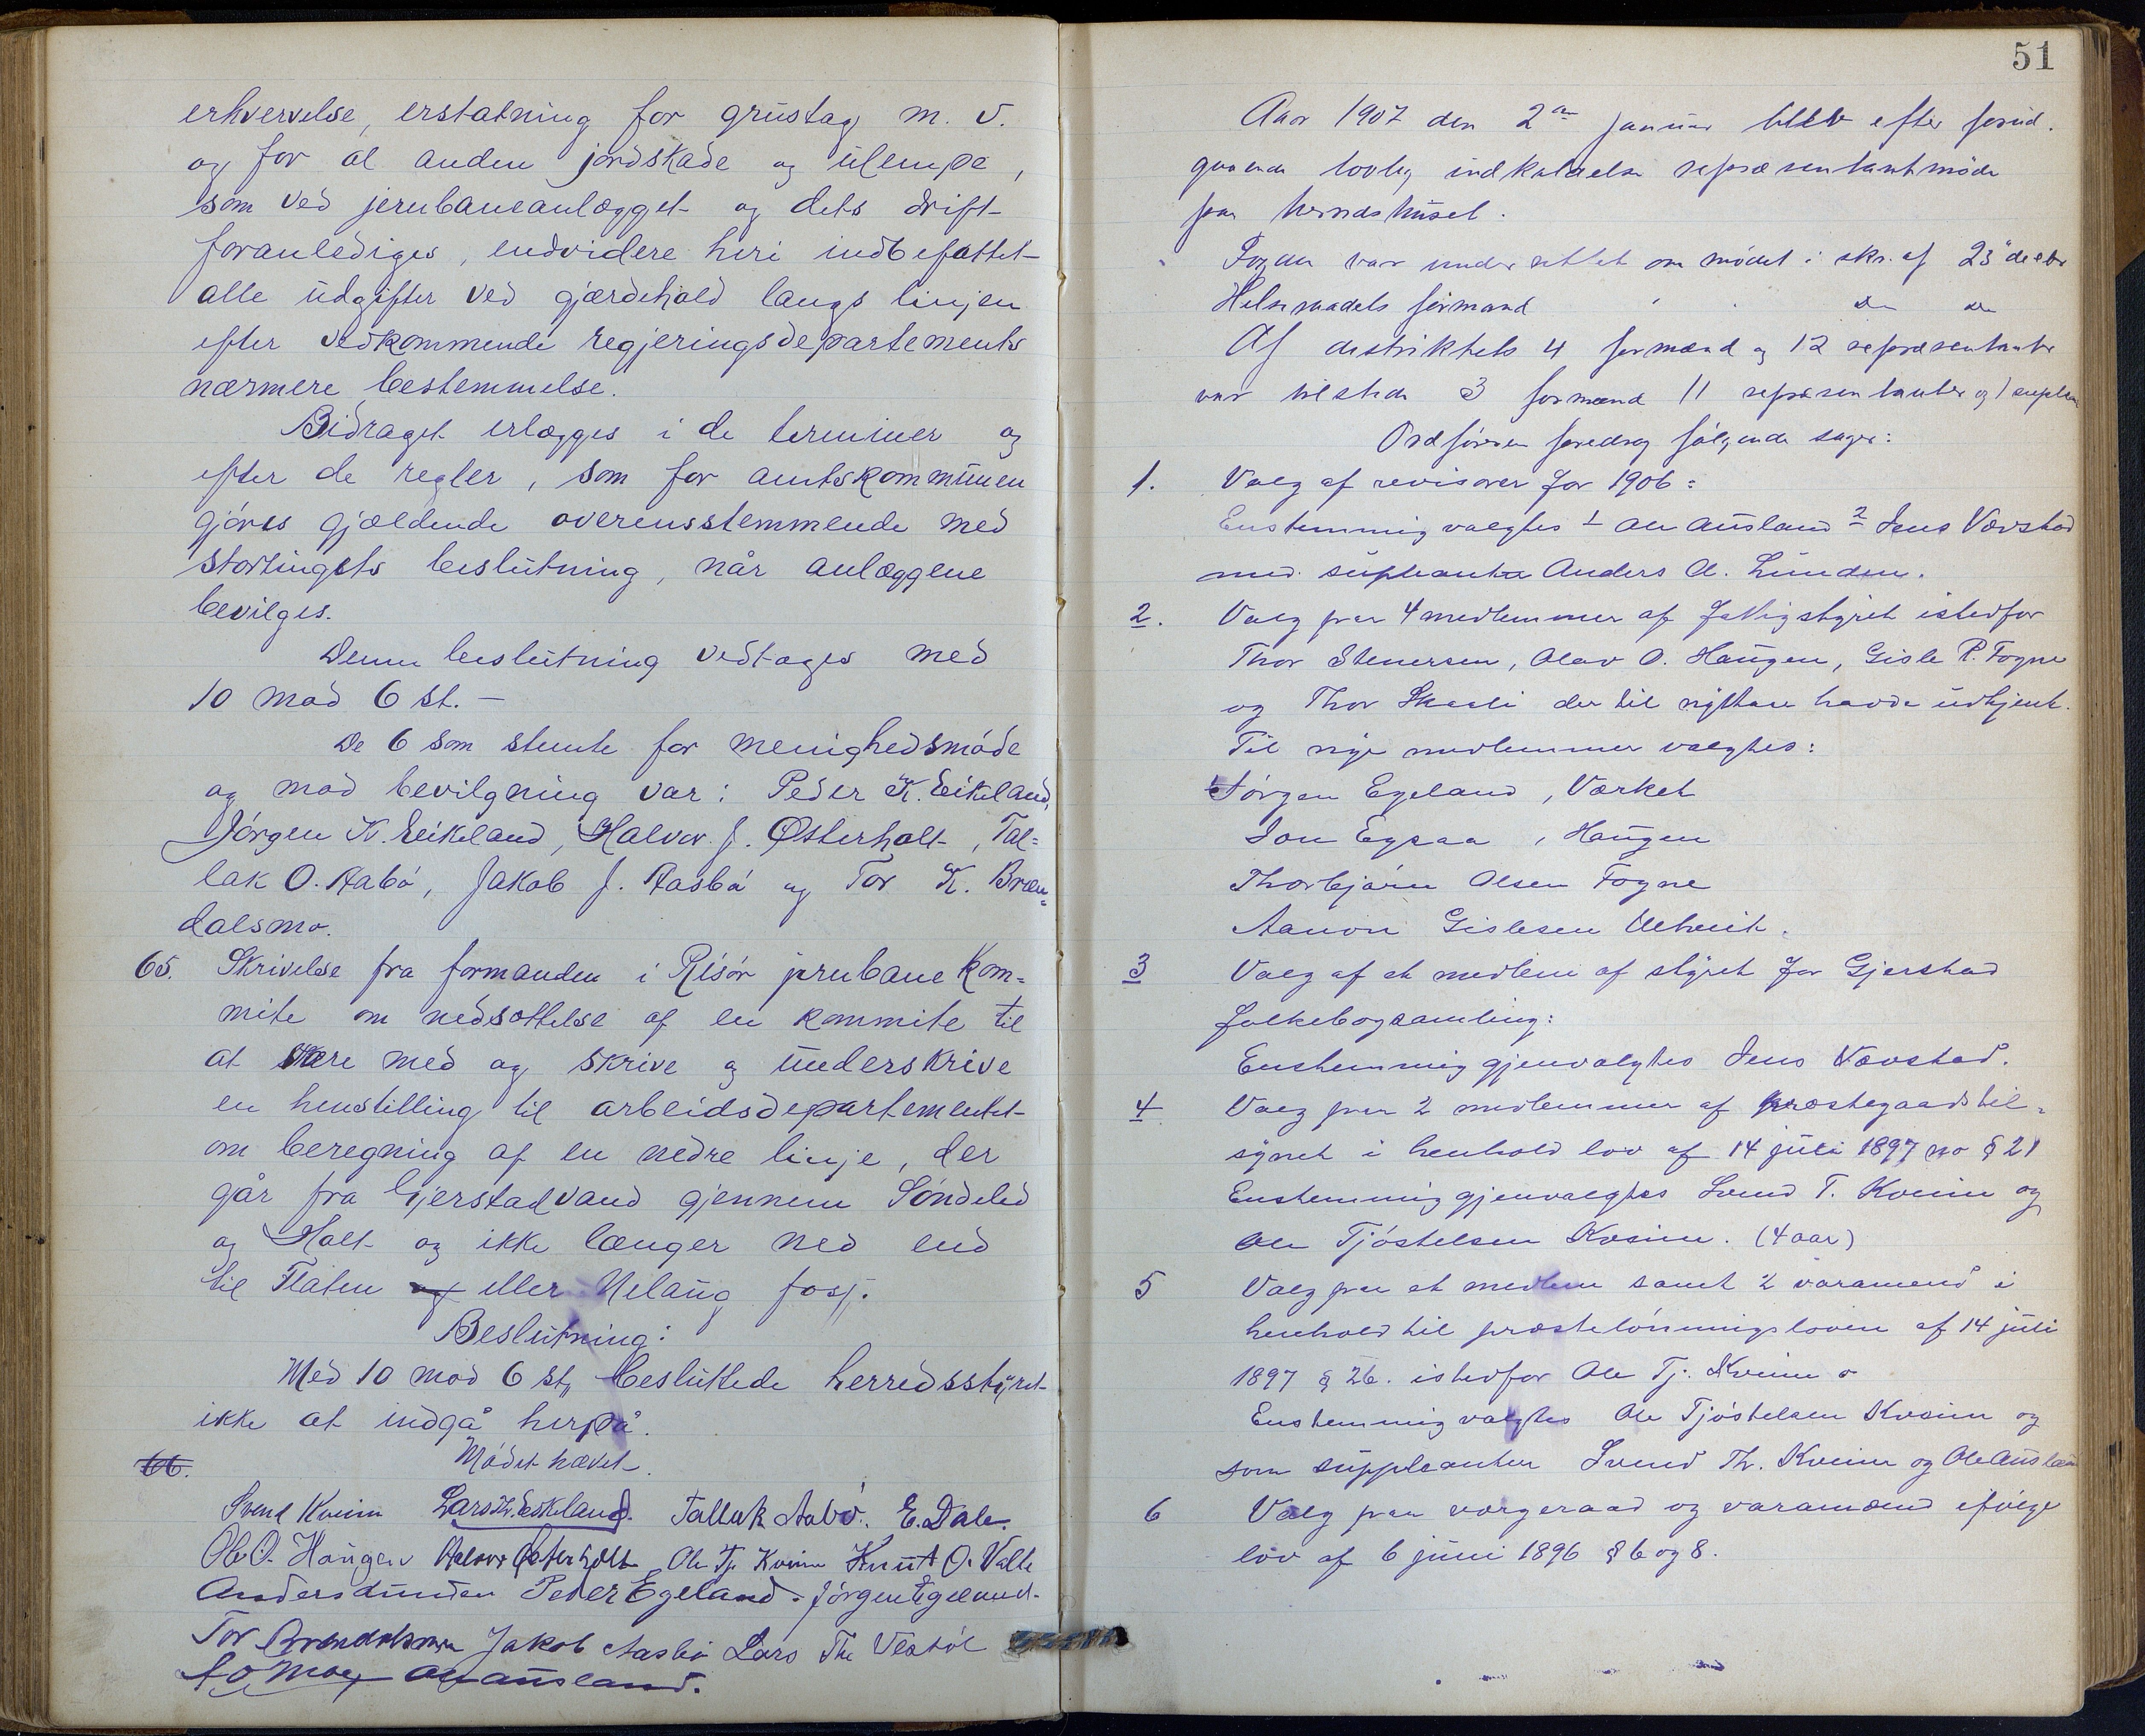 erhvervelse, erstatning for grustag m. v.
og for al anden jordskade og ulempe,
som ved jernbaneanlægget og dets drift
foranlediges, endvidere heri indbefattet
alle udgifter ved gjærdehold langs linjen
efter vedkommende regjeringsdepartements
nærmere bestemmelse.
Bidraget erlægges i de terminer og
efter de regler, som for amtskommunen
gjøres gjældende overensstemmende med
stortingets beslutning, når anlæggene
bevilges.
Denne beslutning vedtages med
10 mod 6 st. —
De 6 som stemte for menighedsmøde
og mod bevilgning var: Peder K. Eikeland,
Jørgen K. Eikeland, Halvor J. Østerholt, Tal=
lak O. Aabø, Jakob J. Aasbø og Tor K. Bræn=
dalsmo.
65. Skrivelse fra formanden i Risør jernbane Kom=
mite om nedsættelse af en kommite til
at være med og skrive og underskrive
en henstilling til arbeidsdepartementet
om beregning af en nedre linje, der
går fra Gjerstadvand gjennem Søndeled
og Holt og ikke længer ned end
til Flaten eller Nelaug foss.
Beslutning:
Med 10 mod 6 st, besluttede herredsstyret
ikke at indgå herpå.
66. Mødet hævet.
Svend Kveim Lars Th. Eskeland. Tallak Aabø. E. Dale.
Ole O. Haugen Halvor Østerholt Ole Tj. Kveim Knut O. Valle
Anders Lunden Peder Egeland - Jørgen Egeland.
Tor Brændalsmo Jakob Aasbø Lars Th. Vestøl
Moe Ole Ausland.
51
Aar 1907 den 2den januar blev efter forud.
gaaende lovlig indkaldelse repræsentantmøde
paa herredshuset.
Fogden var underrettet om mødet i skr. af 23de decbr
Helseraadets formand do do
Af distriktets 4 formænd og 12 repræsentanter
var tilstede 3 formænd 11 repræsentanter og 1 suplean
Ordføreren foredrog følgende sager:
1. Valg af revisorer for 1906:
Enstemmig valgtes 1 Ole Ausland 2 Jens Vævstad
med supleanter Anders A. Lunden.
2. Valg paa 4 medlemmer af fattigstyret istedfor
Thor Stenersen, Olav O. Haugen, Gisle P. Fogne
og Thor Skaali der til nyttaar havde udtjent.
Til nye medlemmer valgtes:
Jørgen Egeland, Værket
Jon Egsaa, Haugen
Thorbjørn Olsen Fogne
Aanon Gislesen
3 Valg af et medlem af styret for Gjerstad
folkebogsamling:
Enstemmig gjenvalgtes Jens Vævstad.
4 Valg paa 2 medlemmer af præstegaardstil=
synet i henhold lov af 14 juli 1897 no § 21
Enstemmig gjenvalgtes Svend T. Kveim og
Ole Tjøstelsen Kveim. (4 aar)
5 Valg paa et medlem samt 2 varamænd i
henhold til præstelønningsloven af 14 juli
1897 § 26. istedfor Ole Tj. Kveim
Enstemmig valgtes Ole Tjøstelsen Kveim og
som suppleanter Svend Th. Kveim og Ole Ausland
6 Valg paa vergeraad og varamænd ifølge
lov af 6 juni 1896 § 6 og 8.